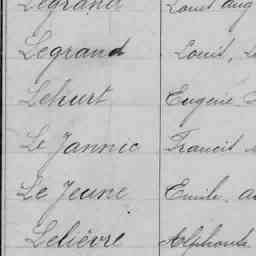 Legrand Louis Aug
Legrand Louis,
Lehurt Eugène
Le Jannic Francis
Le Jeune Emile
Lelièvre Alphonse